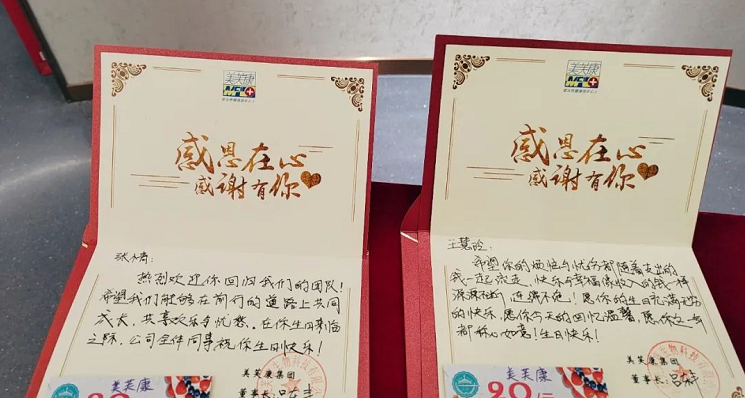 美芙康
MFK
感恩在心
感谢有你
热烈欢迎你回归我们的团队!
希望我们能够在前行的道路上共同
成长,共享欢乐与忧愁。在你生日来临
之际,公司全体同事祝你生日快乐!
美芙康集团
董事长:
美芙康
20元
美芙康
感恩在心
感谢有你
王慧玲:
希望你的烦恼与忧伤都随着支出的
钱一起流走,快乐与幸福像收入的钱一样
源源不断
愿你的生日充满无穷
的快乐,愿你今天的回忆温馨,愿你这一年
都称心如意!生日快乐!
美芙康集团
董事长:
美芙康
20元